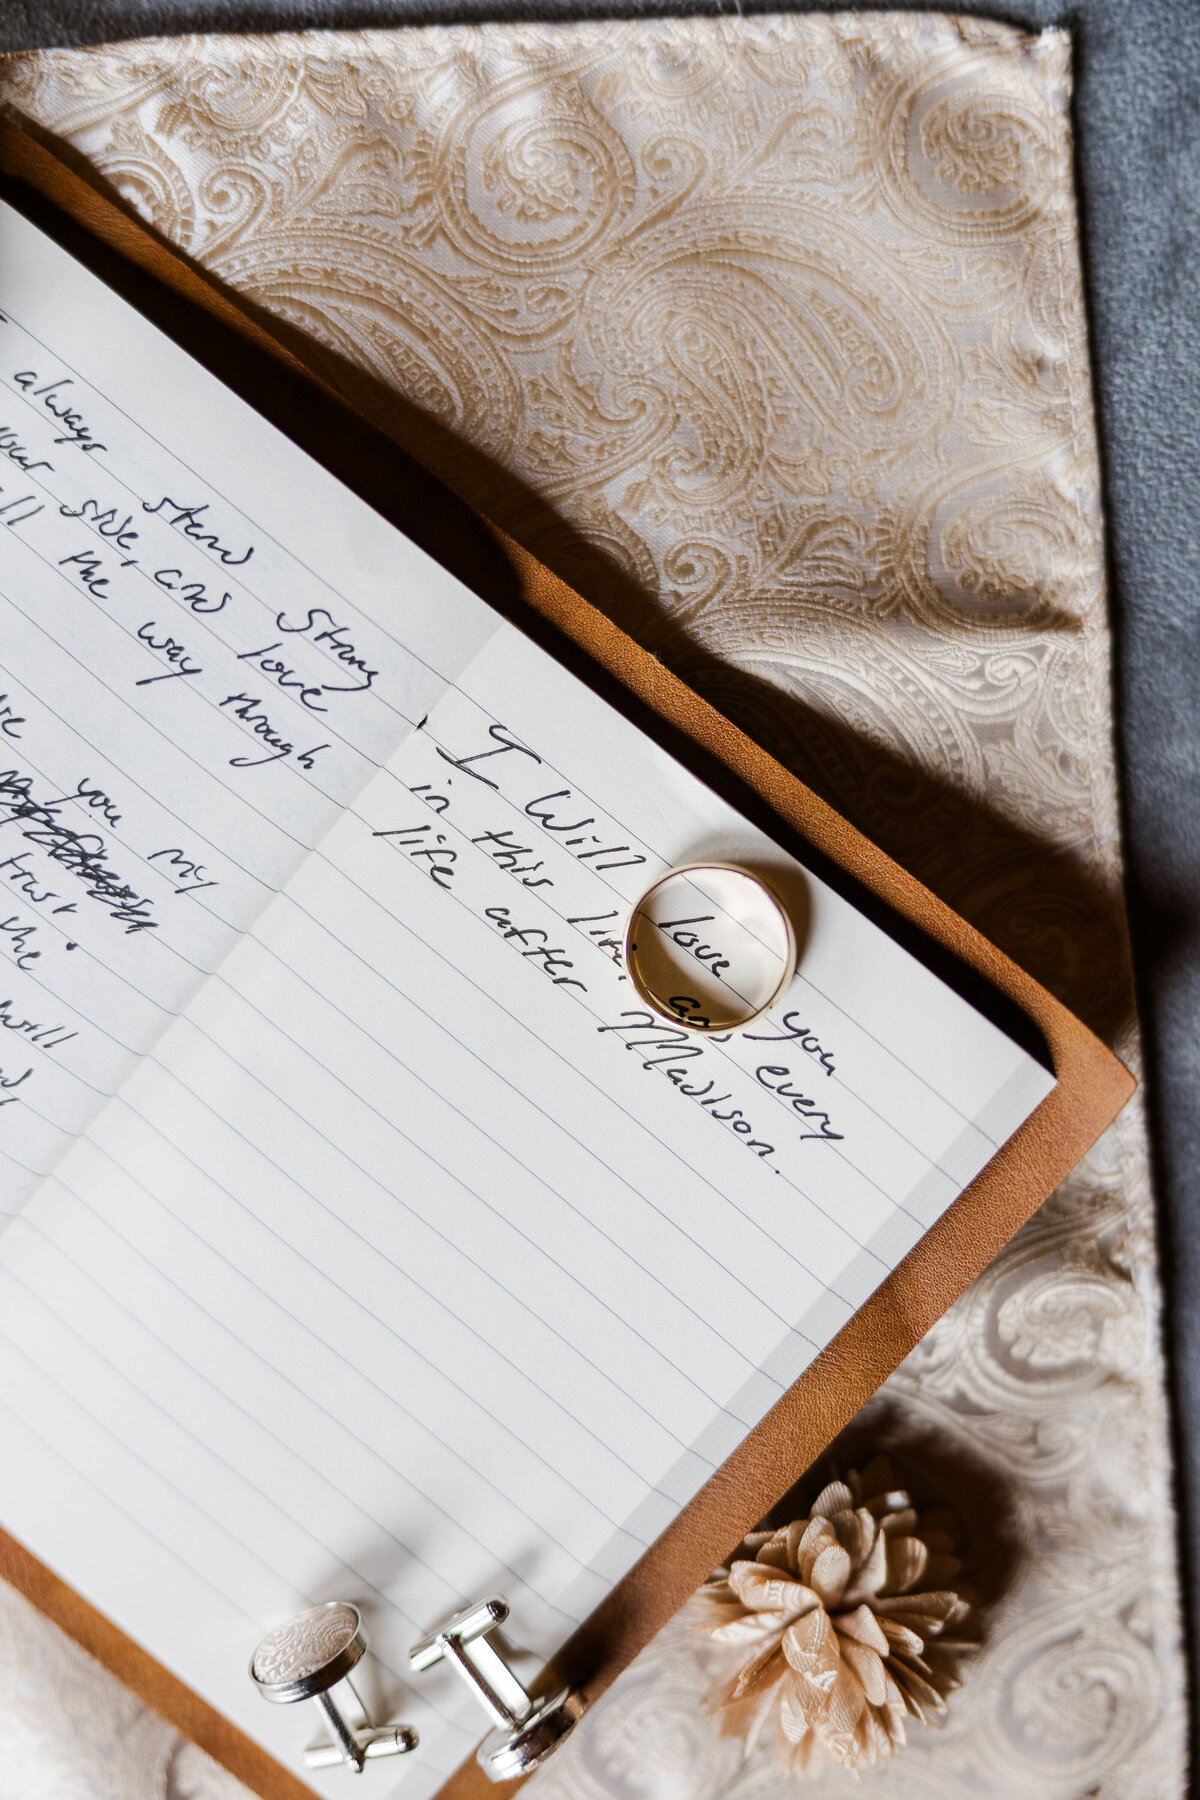 always stand strong
your side, and love
all the way through
you my
trust.
the
will
I Will love you
in this life, and every
life after Madison.